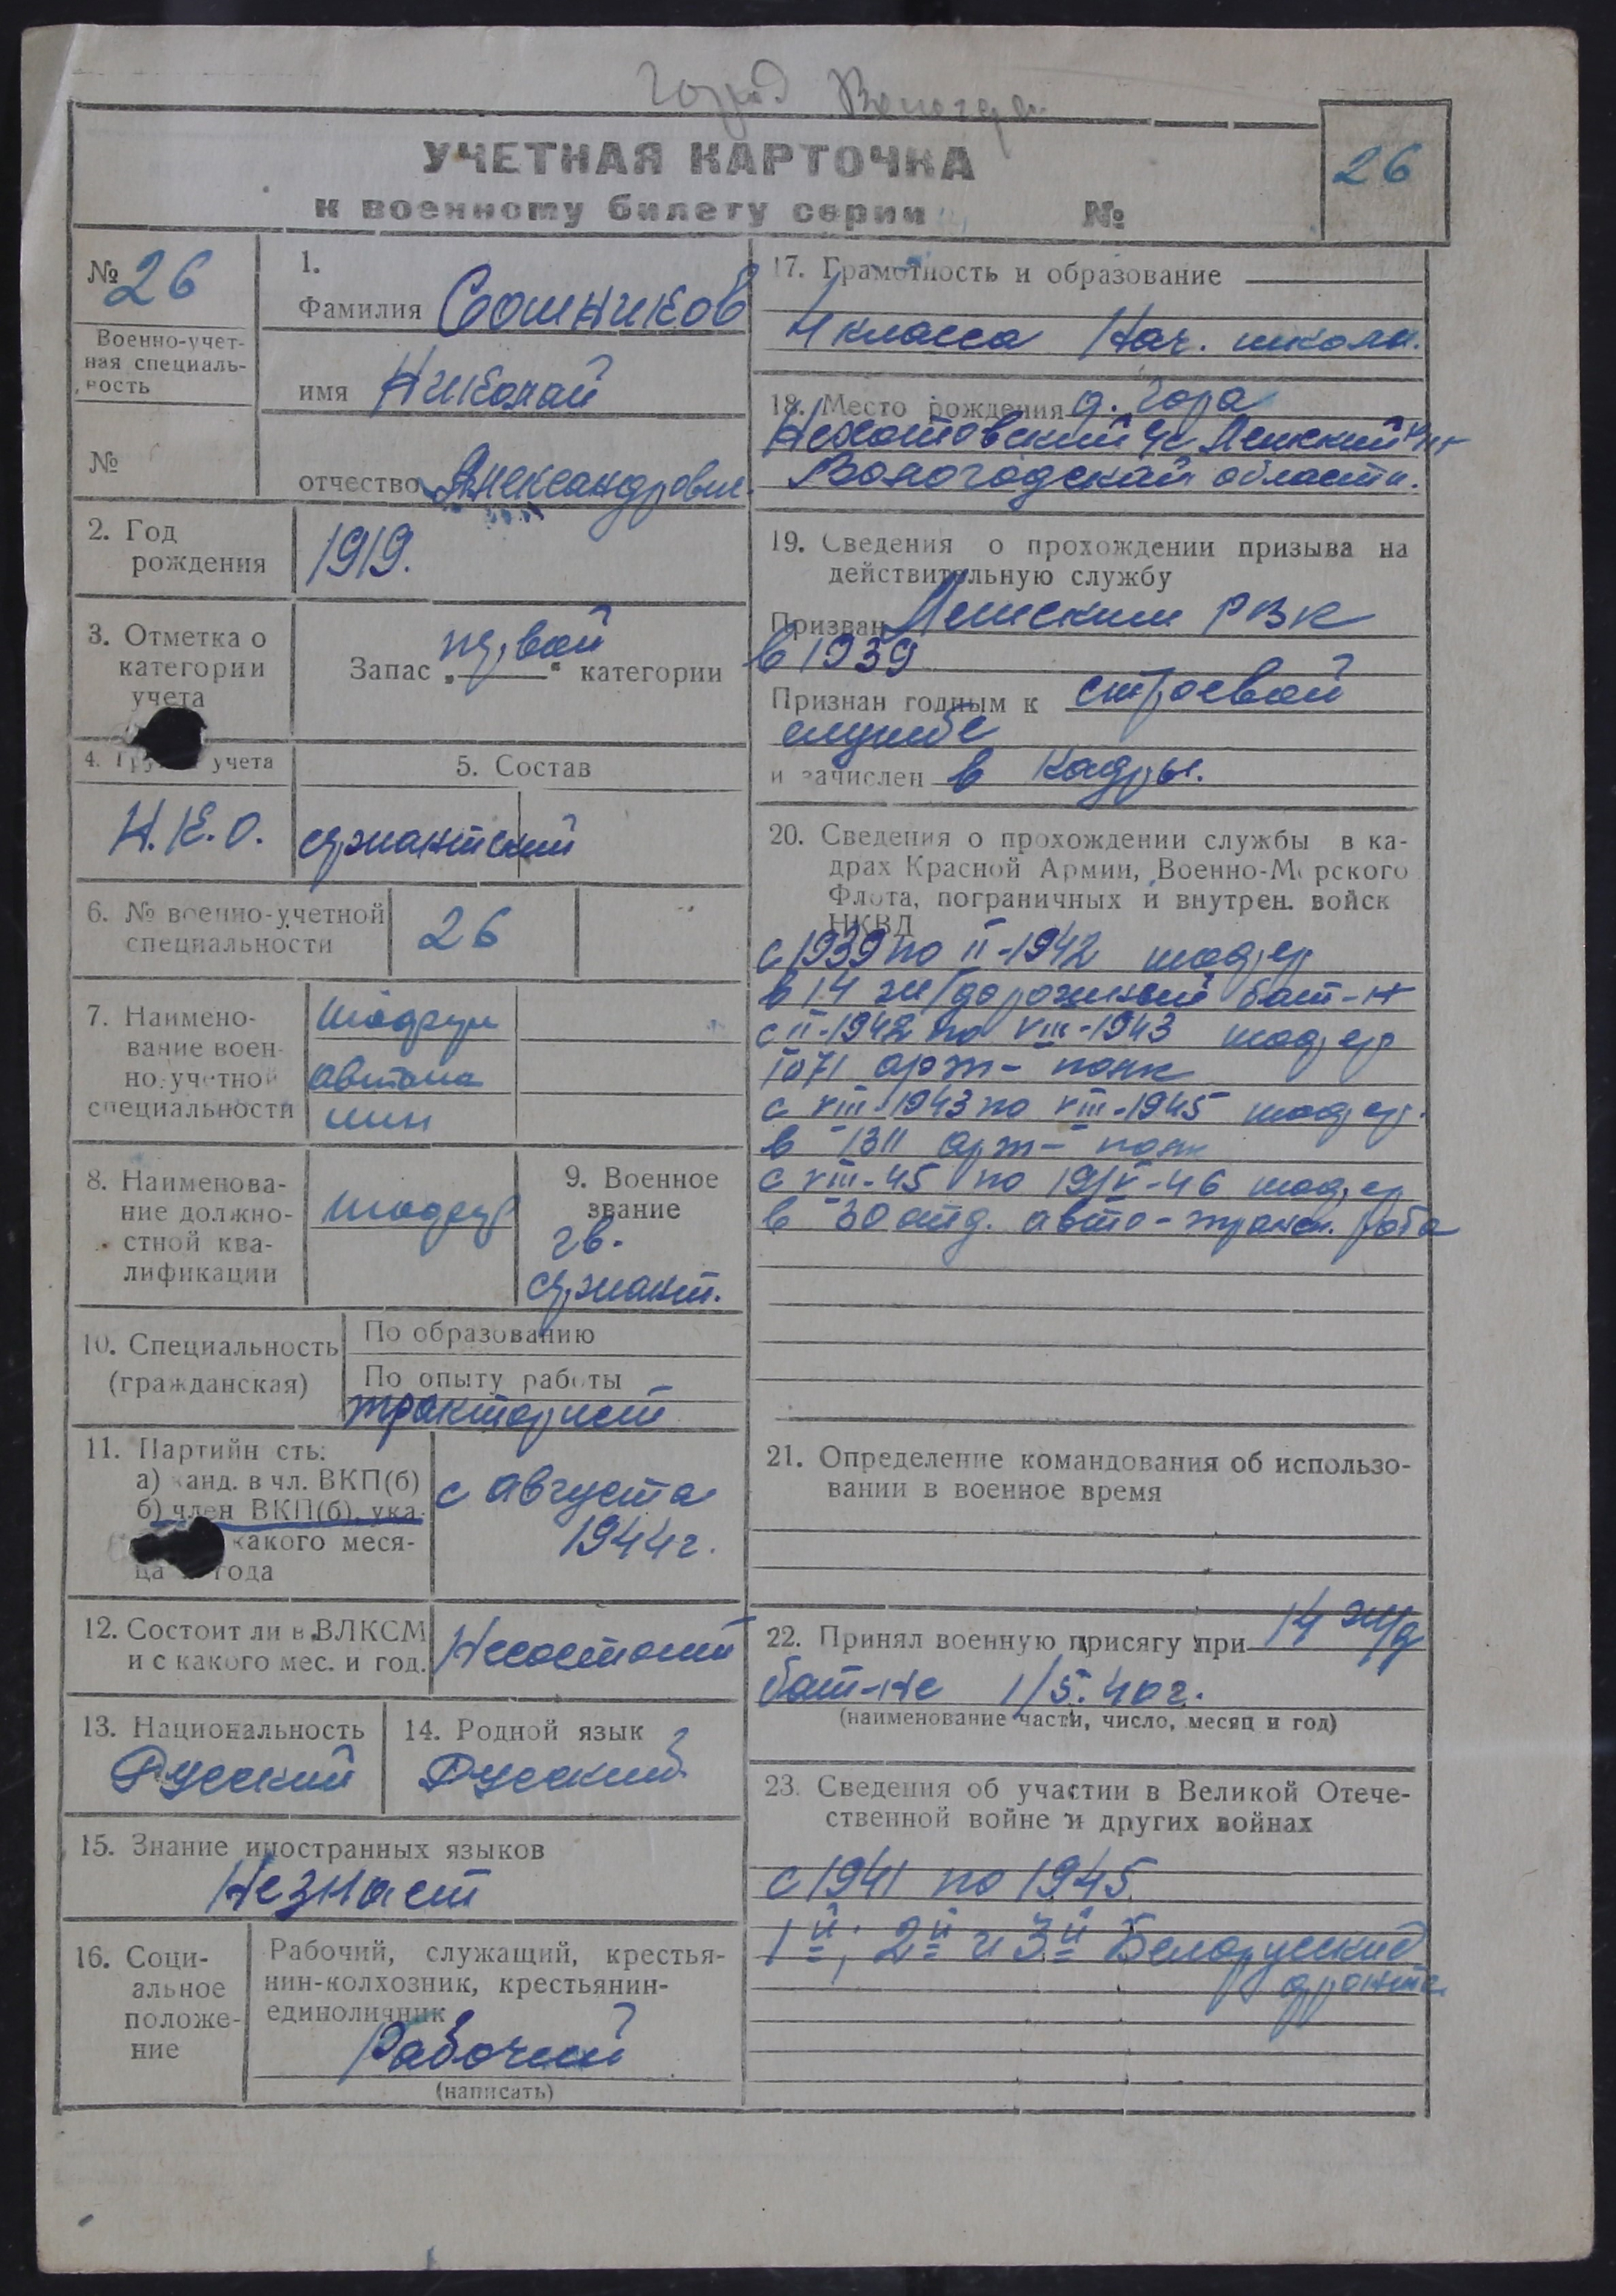 город Вологда
УЧЕТНАЯ КАРТОЧКА
к военному билету серии №
26
№ 26
Военно-учет-
ная специаль-
ность
№
1.
Фамилия Сошников
имя Николай
отчество Александрович
2. Год
рождения
1919.
3. Отметка о
категории
учета
Запас „первой“ категории
4. учета
Н.К.О.
5. Состав
сержантский
6. № военно-учетной
специальности
26
7. Наимено-
вание воен-
но-учетной
специальности
шофери
автома
шин
8. Наименова-
ние должно-
стной ква-
лификации
шофер
9. Военное
звание
гв.
сержант.
10. Специальность
(гражданская)
По образованию
По опыту работы
тракторист
11. Партийн сть:
а) канд. в чл. ВКП(б)
б) член ВКП(б), ука-
какого меся-
ца года
с августа
1944г.
12. Состоит ли в ВЛКСМ
и с какого мес. и год.
Несостоит
13. Национальность
Русский
14. Родной язык
Русский
15. Знание иностранных языков
Незнает
16. Соци-
альное
положе-
ние
Рабочий, служащий, крестья-
нин-колхозник, крестьянин-
единоличник
Рабочий
(написать)
17. Грамотность и образование
4 класса Нач. школы.
18. Место рождения д. Гора
р-н
Вологодской области.
19. Сведения о прохождении призыва на
действительную службу
Призван РВК
в 1939
Признан годным к строевой
службе
и зачислен в Кадры.
20. Сведения о прохождении службы в ка-
драх Красной Армии, Военно-Морского
Флота, пограничных и внутрен. войск
НКВД
с 1939 по II-1942 шофер
в 14 ж/дорожный бат-н
с II-1942 по VIII-1943 шофер
1071 арт- полк
с VIII-1943 по VIII-1945 шофер.
в 1311 арт- полк
с VIII-45 по 19/V-46 шофер
в 30 отд. авто-трансп. рота
21. Определение командования об использо-
вании в военное время
22. Принял военную присягу при 14 ж/д
бат-не 1/5.40г.
(наименование части, число, месяц и год)
23. Сведения об участии в Великой Отече-
ственной войне и других войнах
с 1941 по 1945
1й, 2й и 3й Белорусский
фронта